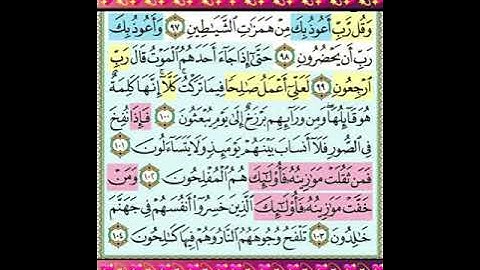 وَقُل رَّبِّ أَعُوذُ بِكَ مِنْ هَمَزَٰتِ ٱلشَّيَٰطِينِ ٩٧ وَأَعُوذُ بِكَ
رَبِّ أَن يَحْضُرُونِ ٩٨ حَتَّىٰٓ إِذَا جَآءَ أَحَدَهُمُ ٱلْمَوْتُ قَالَ رَبِّ
ٱرْجِعُونِ ٩٩ لَعَلِّىٓ أَعْمَلُ صَٰلِحًا فِيمَا تَرَكْتُ ۚ كَلَّآ ۚ إِنَّهَا كَلِمَةٌ
هُوَ قَآئِلُهَا ۖ وَمِن وَرَآئِهِم بَرْزَخٌ إِلَىٰ يَوْمِ يُبْعَثُونَ ١٠٠ فَإِذَا نُفِخَ
فِى ٱلصُّورِ فَلَآ أَنسَابَ بَيْنَهُمْ يَوْمَئِذٍ وَلَا يَتَسَآءَلُونَ ١٠١
فَمَن ثَقُلَتْ مَوَٰزِينُهُۥ فَأُو۟لَٰٓئِكَ هُمُ ٱلْمُفْلِحُونَ ١٠٢ وَمَنْ
خَفَّتْ مَوَٰزِينُهُۥ فَأُو۟لَٰٓئِكَ ٱلَّذِينَ خَسِرُوٓا۟ أَنفُسَهُمْ فِى جَهَنَّمَ
خَٰلِدُونَ ١٠٣ تَلْفَحُ وُجُوهَهُمُ ٱلنَّارُ وَهُمْ فِيهَا كَٰلِحُونَ ١٠٤